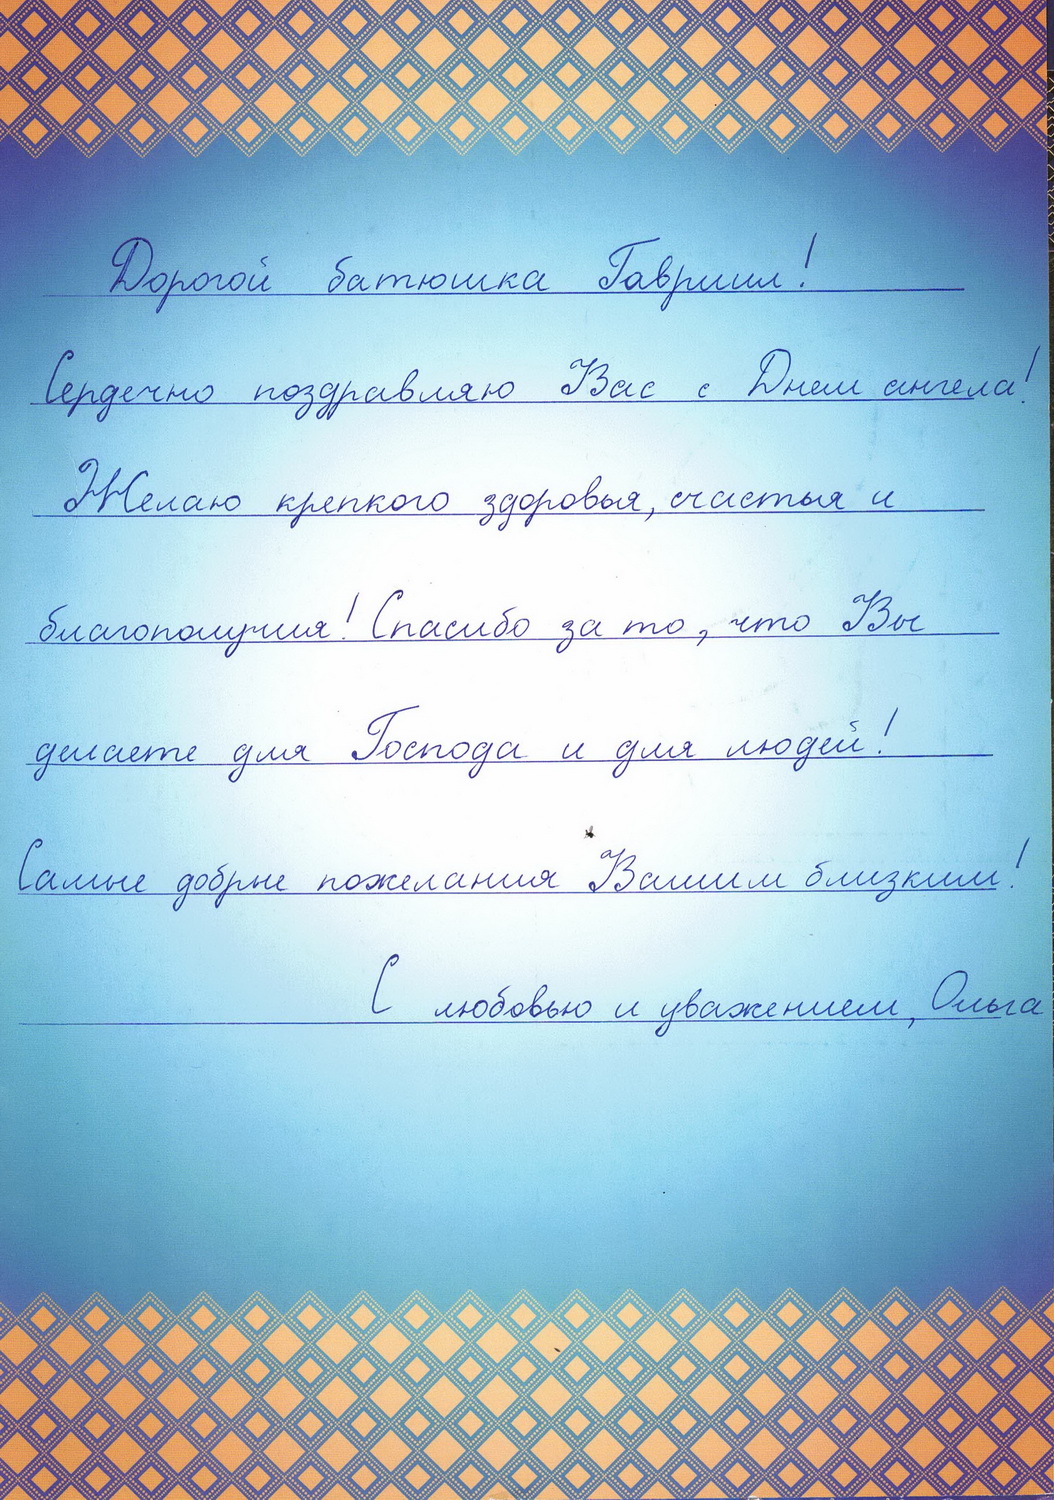 Дорогой батюшка Гавриил!
Сердечно поздравляю Вас с Днем ангела!
Желаю крепкого здоровья, счастья и
благополучия! Спасибо за то, что Вы
делаете для Господа и для людей!
Самые добрые пожелания Вашим близким!
С любовью и уважением, Ольга